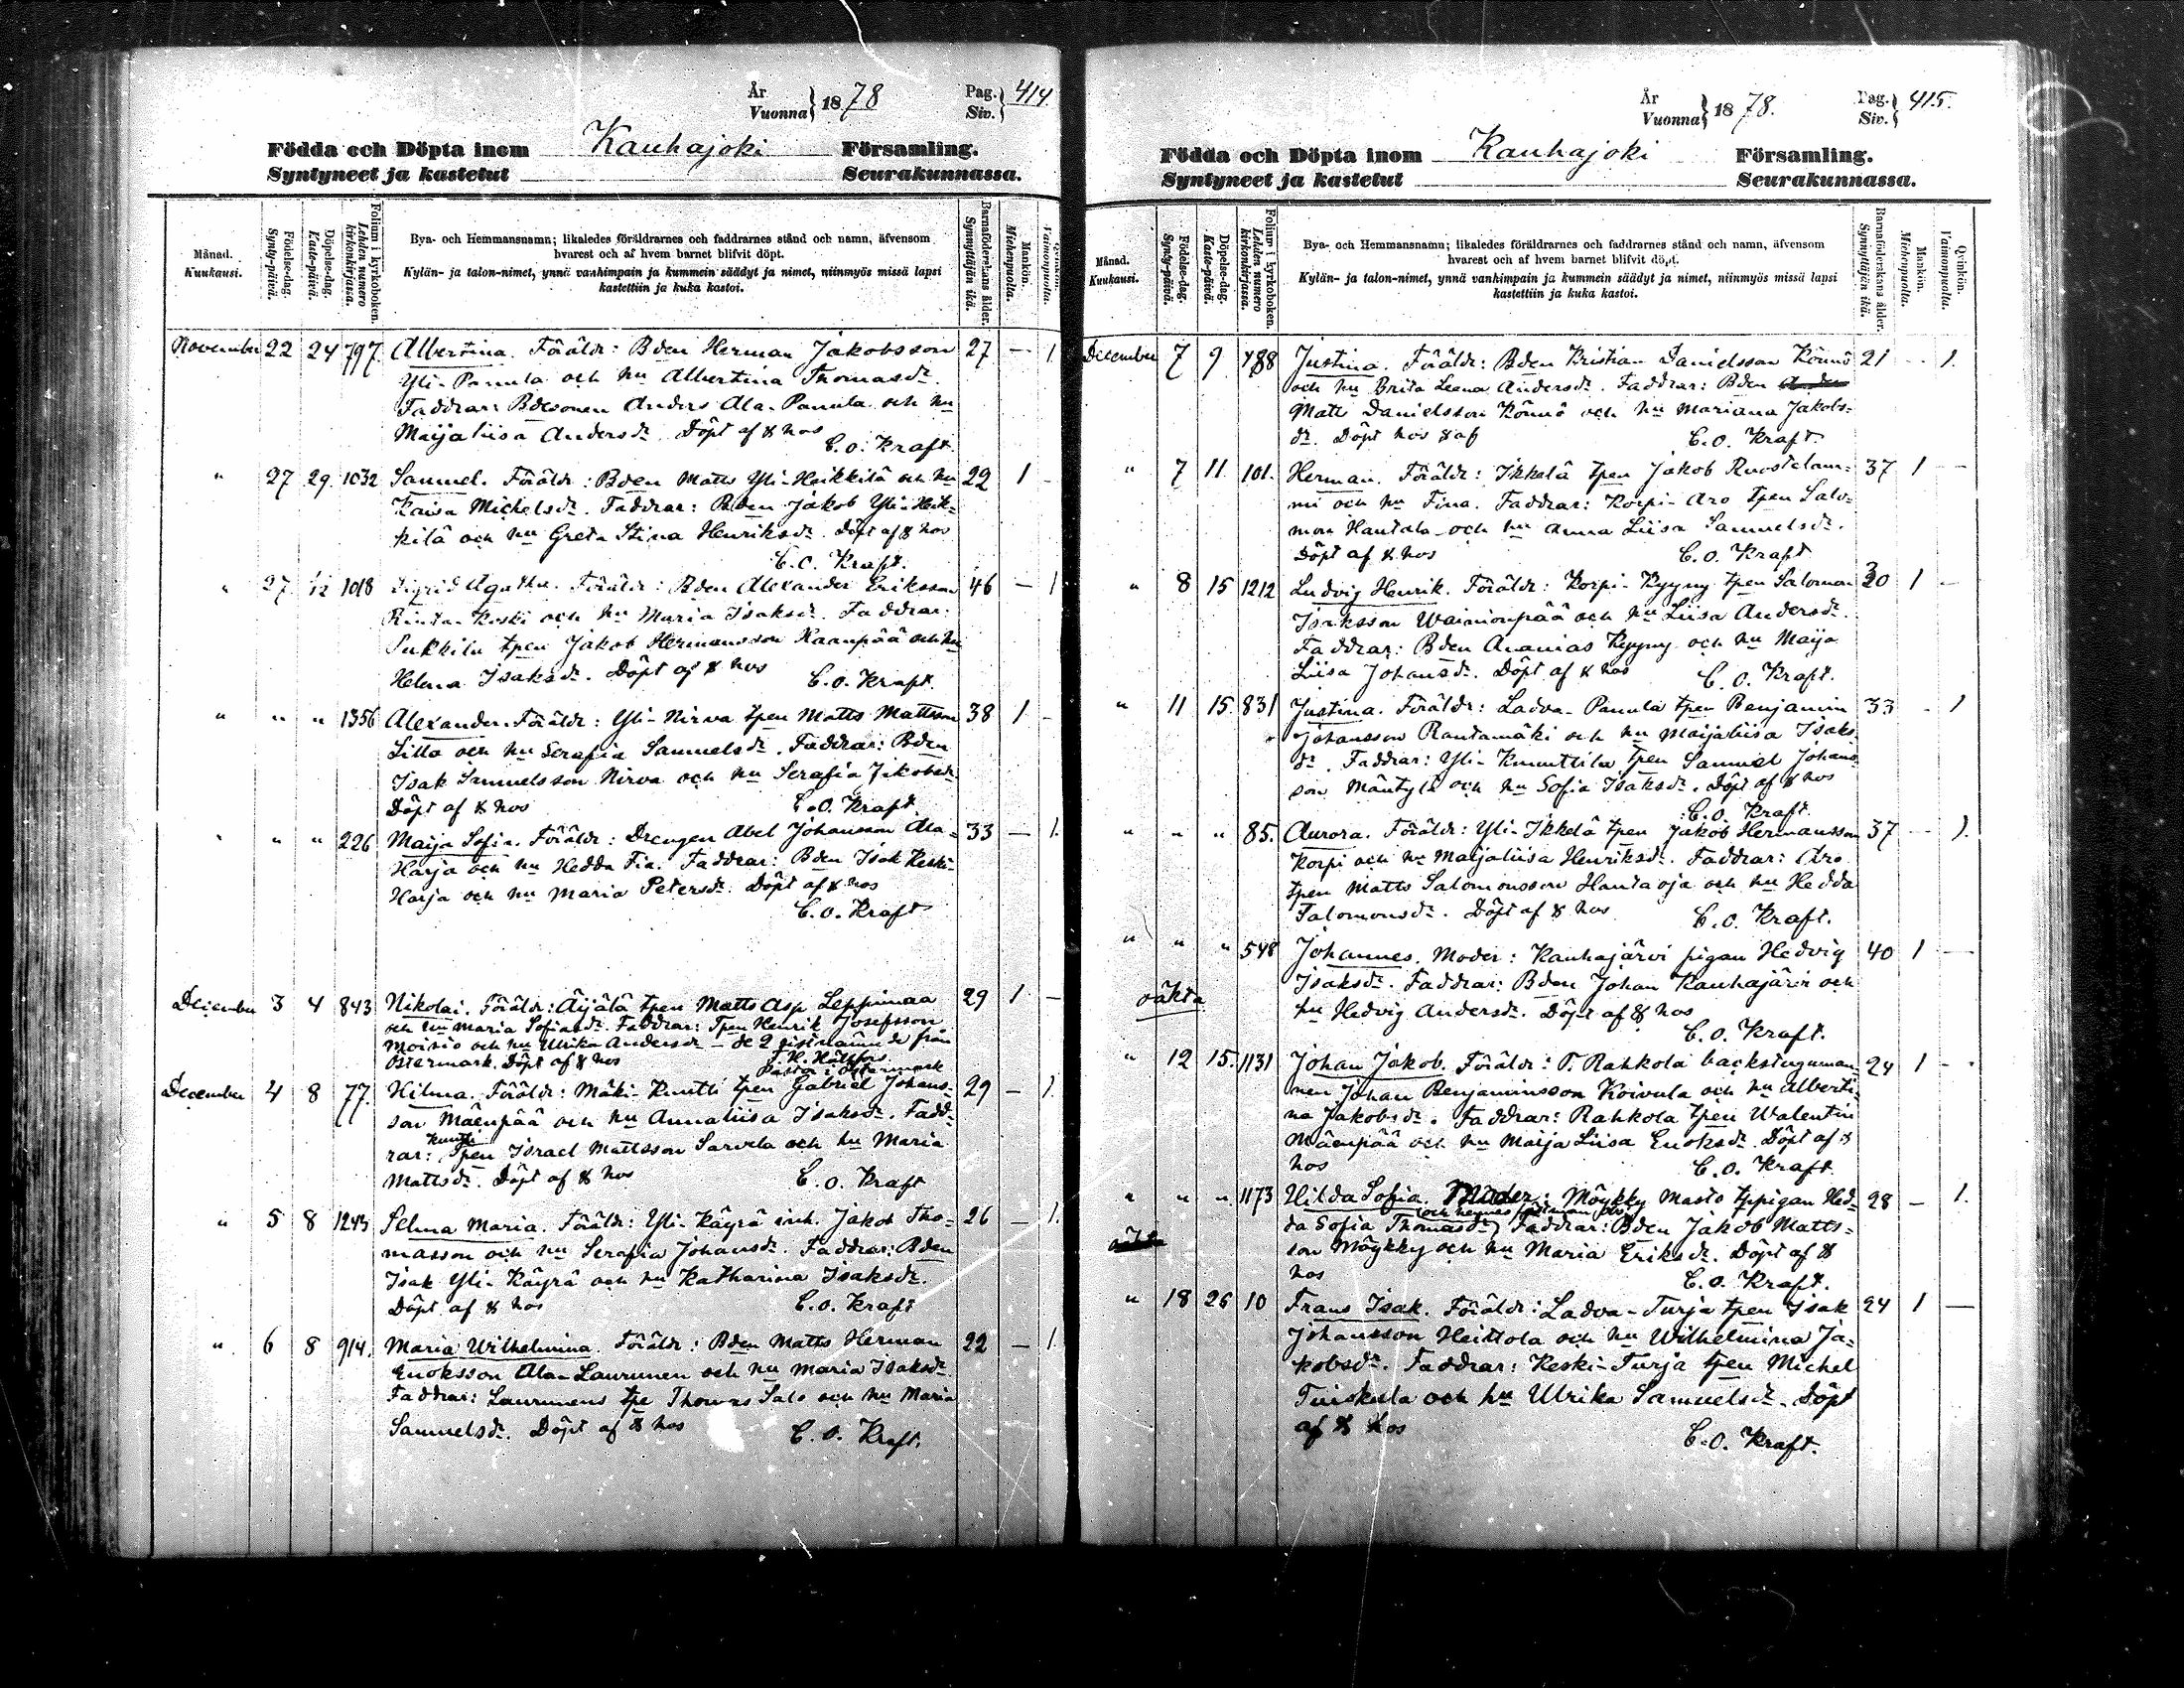 År
Vuonna } 1878
Pag.
Siv. } 414
Födda och Döpta inom Kauhajoki Församling.
Syntyneet ja kastetut Seurakunnassa.
Månad.
Kuukausi.
Födelse-dag.
Synty-päivä.
Döpelse-dag.
Kaste-päivä.
Folium i kyrkoboken.
Lehden numero kirkonkirjassa.
Bya- och Hemmansnamn; likaledes föräldrarnes och faddrarnes stånd och namn, äfvensom
hvarest och af hvem barnet blifvit döpt.
Kylän- ja talon-nimet, ynnä vanhimpain ja kummein säädyt ja nimet, niinmyös missä lapsi
kastettiin ja kuka kastoi.
Barnaföderskans ålder.
Synnyttäjän ikä.
Mankön.
Miehenpuolta.
Qvinkön.
Vaimonpuolta.
November 22 24 797 Albertina. Föräldr: Bden Herman Jakobsson 27 — 1
Yli-Panula och hu Albertina Thomasdr.
Faddrar: Bdesonen Anders Ala-Panula och hu
Maijaliisa Andersdr. Döpt af & hos
C. O. Kraft.
" 27 29 1032 Samuel. Föräldr: Bden Matts Yli-Heikkilä och hu 22 1 -
Kaisa Michelsdr. Faddrar: Bden Jakob Yli-Heik-
kilä och hu Greta Stina Henriksdr. Döpt af & hos
C. O. Kraft.
" 27 1018 Sigrid Agatha. Föräldr: Bden Alexander Eriksson 46 — 1
Rinta-Koski och hu Maria Isaksdr. Faddrar:
Sukkila tpen Jakob Hermansson Kaanpää och hu
Helena Isaksdr. Döpt af & hos C. O. Kraft.
" " " 1356 Alexander. Föräldr: Yli-Nirva tpen Matts Mattsson 38 1 -
Lilla och hu Serafia Samuelsdr. Faddrar: Bden
Isak Samuelsson Nirva och hu Serafia Jakobsdr
Döpt af & hos C. O. Kraft.
" " " 226 Maija Sofia. Föräldr: Drengen Abel Johansson Ala- 33 — 1.
Harja och hu Hedda Fia. Faddrar: Bden Isak Keski-
Harja och hu Maria Petersdr. Döpt af & hos
C. O. Kraft
December 3 4 843 Nikolai. Föräldr: Äijälä tpen Matts Asp Leppimaa 29 1 —
och hu Maria Sofiasdr. Faddrar: Tpen Henrik Josefsson
Moisio och hu Ulrika Andersdr — de 2 sistnämnde från
Östermark. Döpt af & hos
Pastor i Östermark
December 4 8 77. Hilma. Föräldr: Mäki-Kuntti tpen Gabriel Johans- 29 — 1.
son Mäenpää och hu Annaliisa Isaksdr. Fadd-
Kuntti
rar: Tpen Israel Mattsson Sarvela och hu Maria
Mattsdr. Döpt af & hos C. O. Kraft
" 5 8 1243 Selma Maria. Föräldr: Yli-Käyrä inh. Jakob Tho- 26 — 1.
masson och hu Serafia Johansdr. Faddrar: Bden
Isak Yli-Käyrä och hu Katharina Isaksdr.
Döpt af & hos C. O. Kraft
" 6 8 914. Maria Wilhelmina. Föräldr: Bden Matts Herman 22 — 1.
Enoksson Ala-Laurunen och hu Maria Isaksdr.
Faddrar: Laurunens tpe Thomas Salo och hu Maria
Samuelsdr. Döpt af & hos C. O. Kraft.
År
Vuonna } 1878.
Pag.
Siv. } 415.
Födda och Döpta inom Kauhajoki Församling.
Syntyneet ja kastetut Seurakunnassa.
Månad.
Kuukausi.
Födelse-dag.
Synty-päivä.
Döpelse-dag.
Kaste-päivä.
Folium i kyrkoboken.
Lehden numero kirkonkirjassa.
Bya- och Hemmansnamn; likaledes föräldrarnes och faddrarnes stånd och namn, äfvensom
hvarest och af hvem barnet blifvit döpt.
Kylän- ja talon-nimet, ynnä vanhimpain ja kummein säädyt ja nimet, niinmyös missä lapsi
kastettiin ja kuka kastoi.
Barnaföderskans ålder.
Synnyttäjän ikä.
Mankön.
Miehenpuolta.
Qvinkön.
Vaimonpuolta.
December 7 9 788 Justina. Föräldr: Bden Kristian Danielsson Könnö 21 - 1.
och hu Brita Leena Andersdr. Faddrar: Bden
Matts Danielsson Könnö och hu Mariana Jakobs-
dr. Döpt hos & af C. O. Kraft.
" 7 11 101. Herman. Föräldr: Ikkelä tpen Jakob Ruostelam- 37 1 —
mi och hu Fina. Faddrar: Korpi-Aro tpen Salo-
mon Hautala och hu Anna Liisa Samuelsdr.
Döpt af & hos C. O. Kraft
" 8 15 1212 Ludvig Henrik. Föräldr: Korpi-Kyyny tpen Saloman 30 1 —
Isaksson Wainionpää och hu Liisa Andersdr.
Faddrar: Bden Ananias Kyyny och hu Maija
Liisa Johansdr. Döpt af & hos C. O. Kraft.
" 11 15 831 Justina. Föräldr: Ladva-Panula tpen Benjamin 33 - 1
Johansson Rantamäki och hu Maijaliisa Isaks-
dr. Faddrar: Yli-Knuuttila tpen Samuel Johans-
son Mäntylä och hu Sofia Isaksdr. Döpt af & hos
C. O. Kraft.
" " " 85. Aurora. Föräldr: Yli-Ikkelä tpen Jakob Hermansson 37 — 1.
Korpi och hu Maijaliisa Henriksdr. Faddrar: Aro
tpen Matts Salomonsson Hautaoja och hu Hedda
Salomonsdr. Döpt af & hos C. O. Kraft.
" " " 548 Johannes. Moder: Kauhajärvi pigan Hedvig 40 1 —
oäkta
Isaksdr. Faddrar: Bden Johan Kauhajärvi och
hu Hedvig Andersdr. Döpt af & hos
C. O. Kraft.
" 12 15. 1131 Johan Jakob. Föräldr: P. Rahkola backstuguman- 24 1 -
nen Johan Benjaminsson Koivula och hu Alberti-
na Jakobsdr. Faddrar: Rahkola tpen Walentin
Mäenpää och hu Maija Liisa Enoksdr. Döpt af &
hos C. O. Kraft.
" " " 1173 Hilda Sofia. Moder: Möykky Masto tppigan Hed- 28 — 1.
da Sofia Thomasdr. Faddrar: Bden Jakob Matts-
son Möykky och hu Maria Eriksdr. Döpt af &
hos C. O. Kraft.
" 18 26 10 Frans Isak. Föräldr: Ladva-Turja tpen Isak 24 1 —
Johansson Heittola och hu Wilhelmina Ja-
kobsdr. Faddrar: Keski-Turja tpen Michel
Tuiskula och hu Ulrika Samuelsdr. Döpt
af & hos
C. O. Kraft.